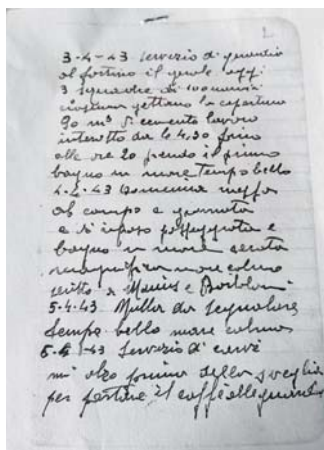 2
3-4-43 servizio di guardia
al fortino il quale oggi
3 squadre di
gettano la copertura
90 m³ di cemento lavoro
interotto da le 4,30 fino
alle ore 20 prendo il primo
bagno in mare tempo bello
4-4-43 domenica messa
al campo e giornata
e di riposo passeggiata e
bagno in mare serata
magnifica mare calmo
scritto a e Bortolo
5-4-43 Nulla da segnalare
tempo bello mare calmo
6-4-43 servizio di
mi alzo prima della sveglia
per portare il caffè alle guardie